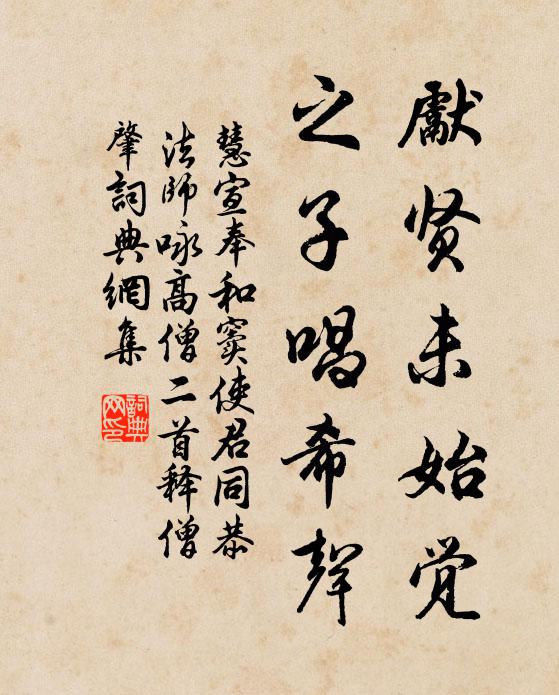 獻贤未始觉
之子唱希聲
慧宣奉和窦使君同恭
法師咏高僧二首释僧
肇詞典網集
詞典网印